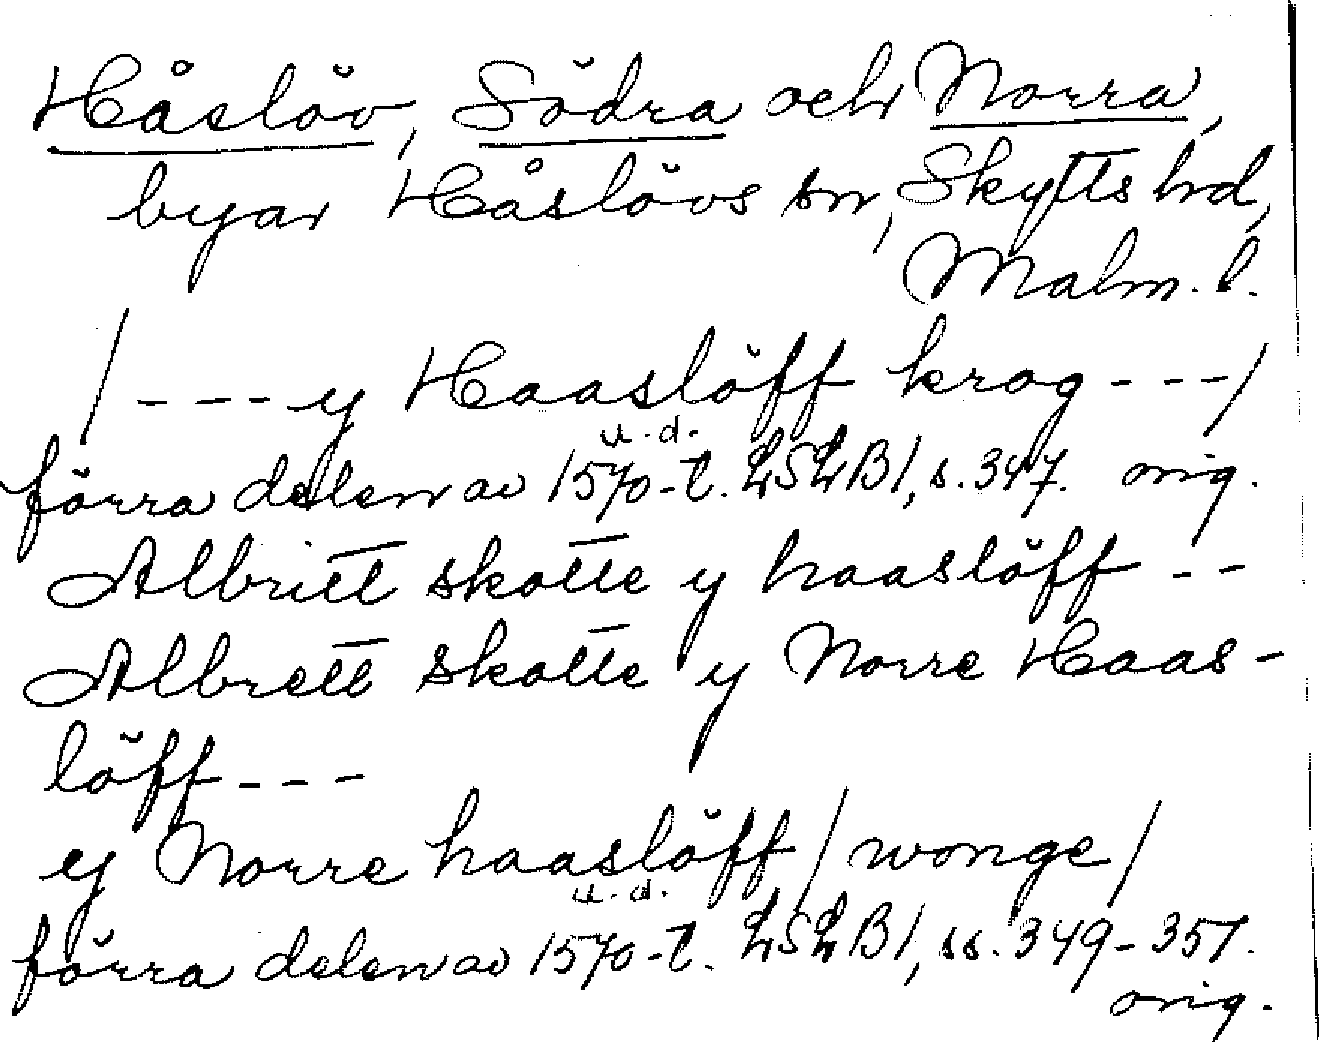 Håslöv, Södra och Norra,
byar Håslövs sn, Skytts hd,
Malm. l.
/---- y Haaslöff krog ---/
u. d.
förra delen av 1570-t. LSLB1, s. 347. orig.
Albritt skotte y haaslöff --
Albrett skotte y Norre Haas-
löff ---
ey Norre haaslöff / wonge /
u. d.
förra delen av 1570-t. LSLB1, ss. 349-357.
orig.